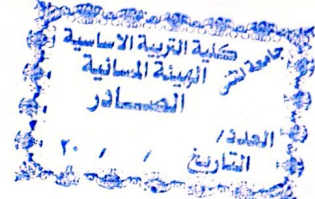 كلية التربية الاساسية
الهيئة المسائية
الصادر
العدد /
التاريخ / / ٢٠